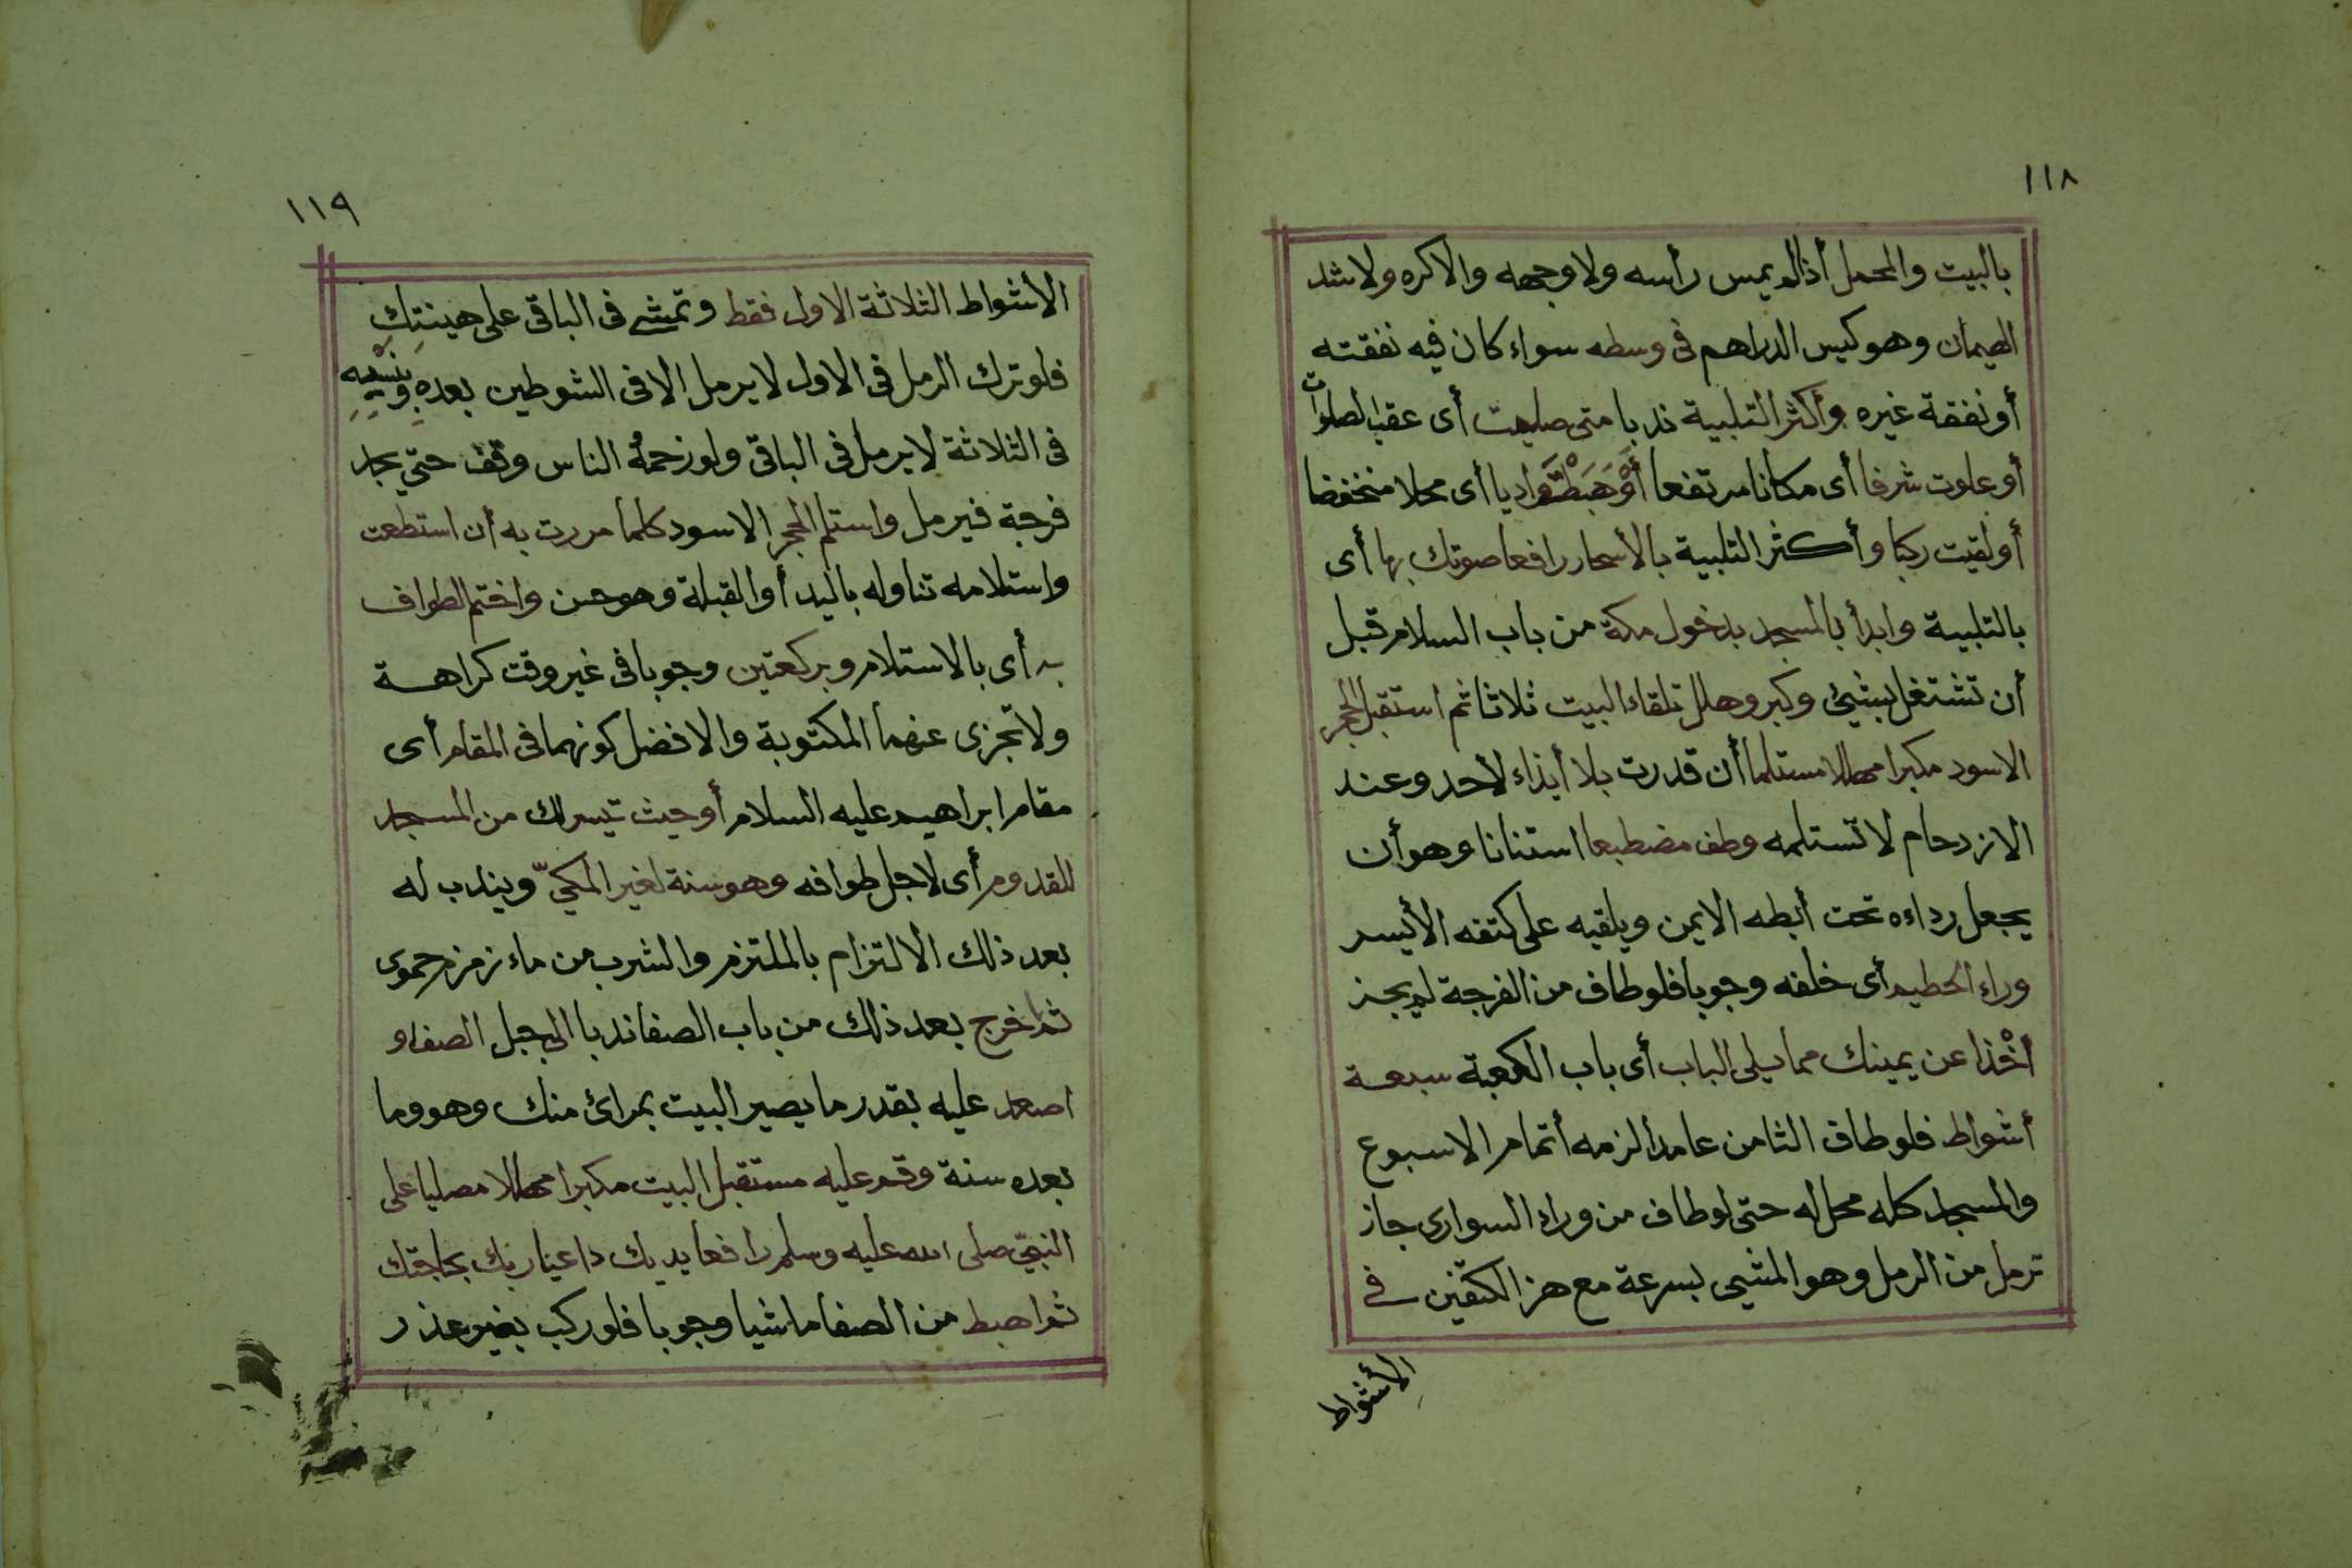 ١١٨
بالبيت والمحمل أذالم يمس رأسه ولاوجهه والاكره ولاشد
الهيمان وهوكيس الدراهم فى وسطه سواء كان فيه نفقته
أونفقة غيره وأكثر التلبية ندبا متى صليت أى عقب الصلوات
أوعلوت شرفا أى مكانا مرتفعا أَوْهَبَطْتَ واديا أى محلا منخفضا
أولقيت ركبا وأكثر التلبية بالأسحار رافعا صوتك بها أى
بالتلبية وابدأ بالمسجد بدخول مكة من باب السلام قبل
أن تشتغل بشيئ وكبر وهلل تلقاء البيت ثلاثا ثم استقبل الحجر
الاسود مكبرا مهللا مستلما أن قدرت بلا أيذاء لأحد وعند
الازدحام لاتستلمه وطف مضطبعا استنانا وهوأن
يجعل رداءه تحت أبطه الايمن ويلقيه على كتفه الأيسر
وراء الحطيم أى خلفه وجوبا فلوطاف من الفرجة لم يجز
أخْذا عن يمينك مما يلى الباب أى باب الكعبة سبعة
أشواط فلوطاف الثامن عامدا لزمه أتمام الاسبوع
والمسجد كله محل له حتى لوطاف من وراء السوارى جاز
ترمل من الرمل وهو المشي بسرعة مع هز الكتفين في
الأشواط
١١٩
الأشواط الثلاثة الاول فقط وتمشے فى الباقى على هينتِكِ
فلوترك الرمل فى الاول لايرمل الافى الشوطين بعده وبنسيه
فى الثلاثة لايرمل فى الباقى ولوزحمهُ الناس وقف حتي يجد
فرجة فيرمل واستلم الحجر الاسود كلما مررت به أن استطعت
واستلامه تناوله باليد أوالقبلة وهوحسن واختم الطواف
به أى بالاستلام وبركعتين وجوبا فى غير وقت كراهة
ولاتجزى عنهما المكتوبة والافضل كونهما فى المقام أى
مقام ابراهيم عليه السلام أوحيث تيسرلك من المسجد
للقدوم أى لاجل طوافه وهوسنة لغير المكيّ ويندب له
بعد ذلك الالتزام بالملتزم والشرب من ماء زمزم حموى
ثم اخرج بعد ذلك من باب الصفا ندبا الى جبل الصفا و
اصعد عليه بقدر ما يصير البيت بمرائ منك وهو وما
بعده سنة وقم عليه مستقبل البيت مكبرا مهللا مصليا على
النبيّ صلى الله عليه وسلم رافعا يديك داعيا ربك بحاجتك
ثم اهبط من الصفا ماشيا وجوبا فلوركب بغير عذر